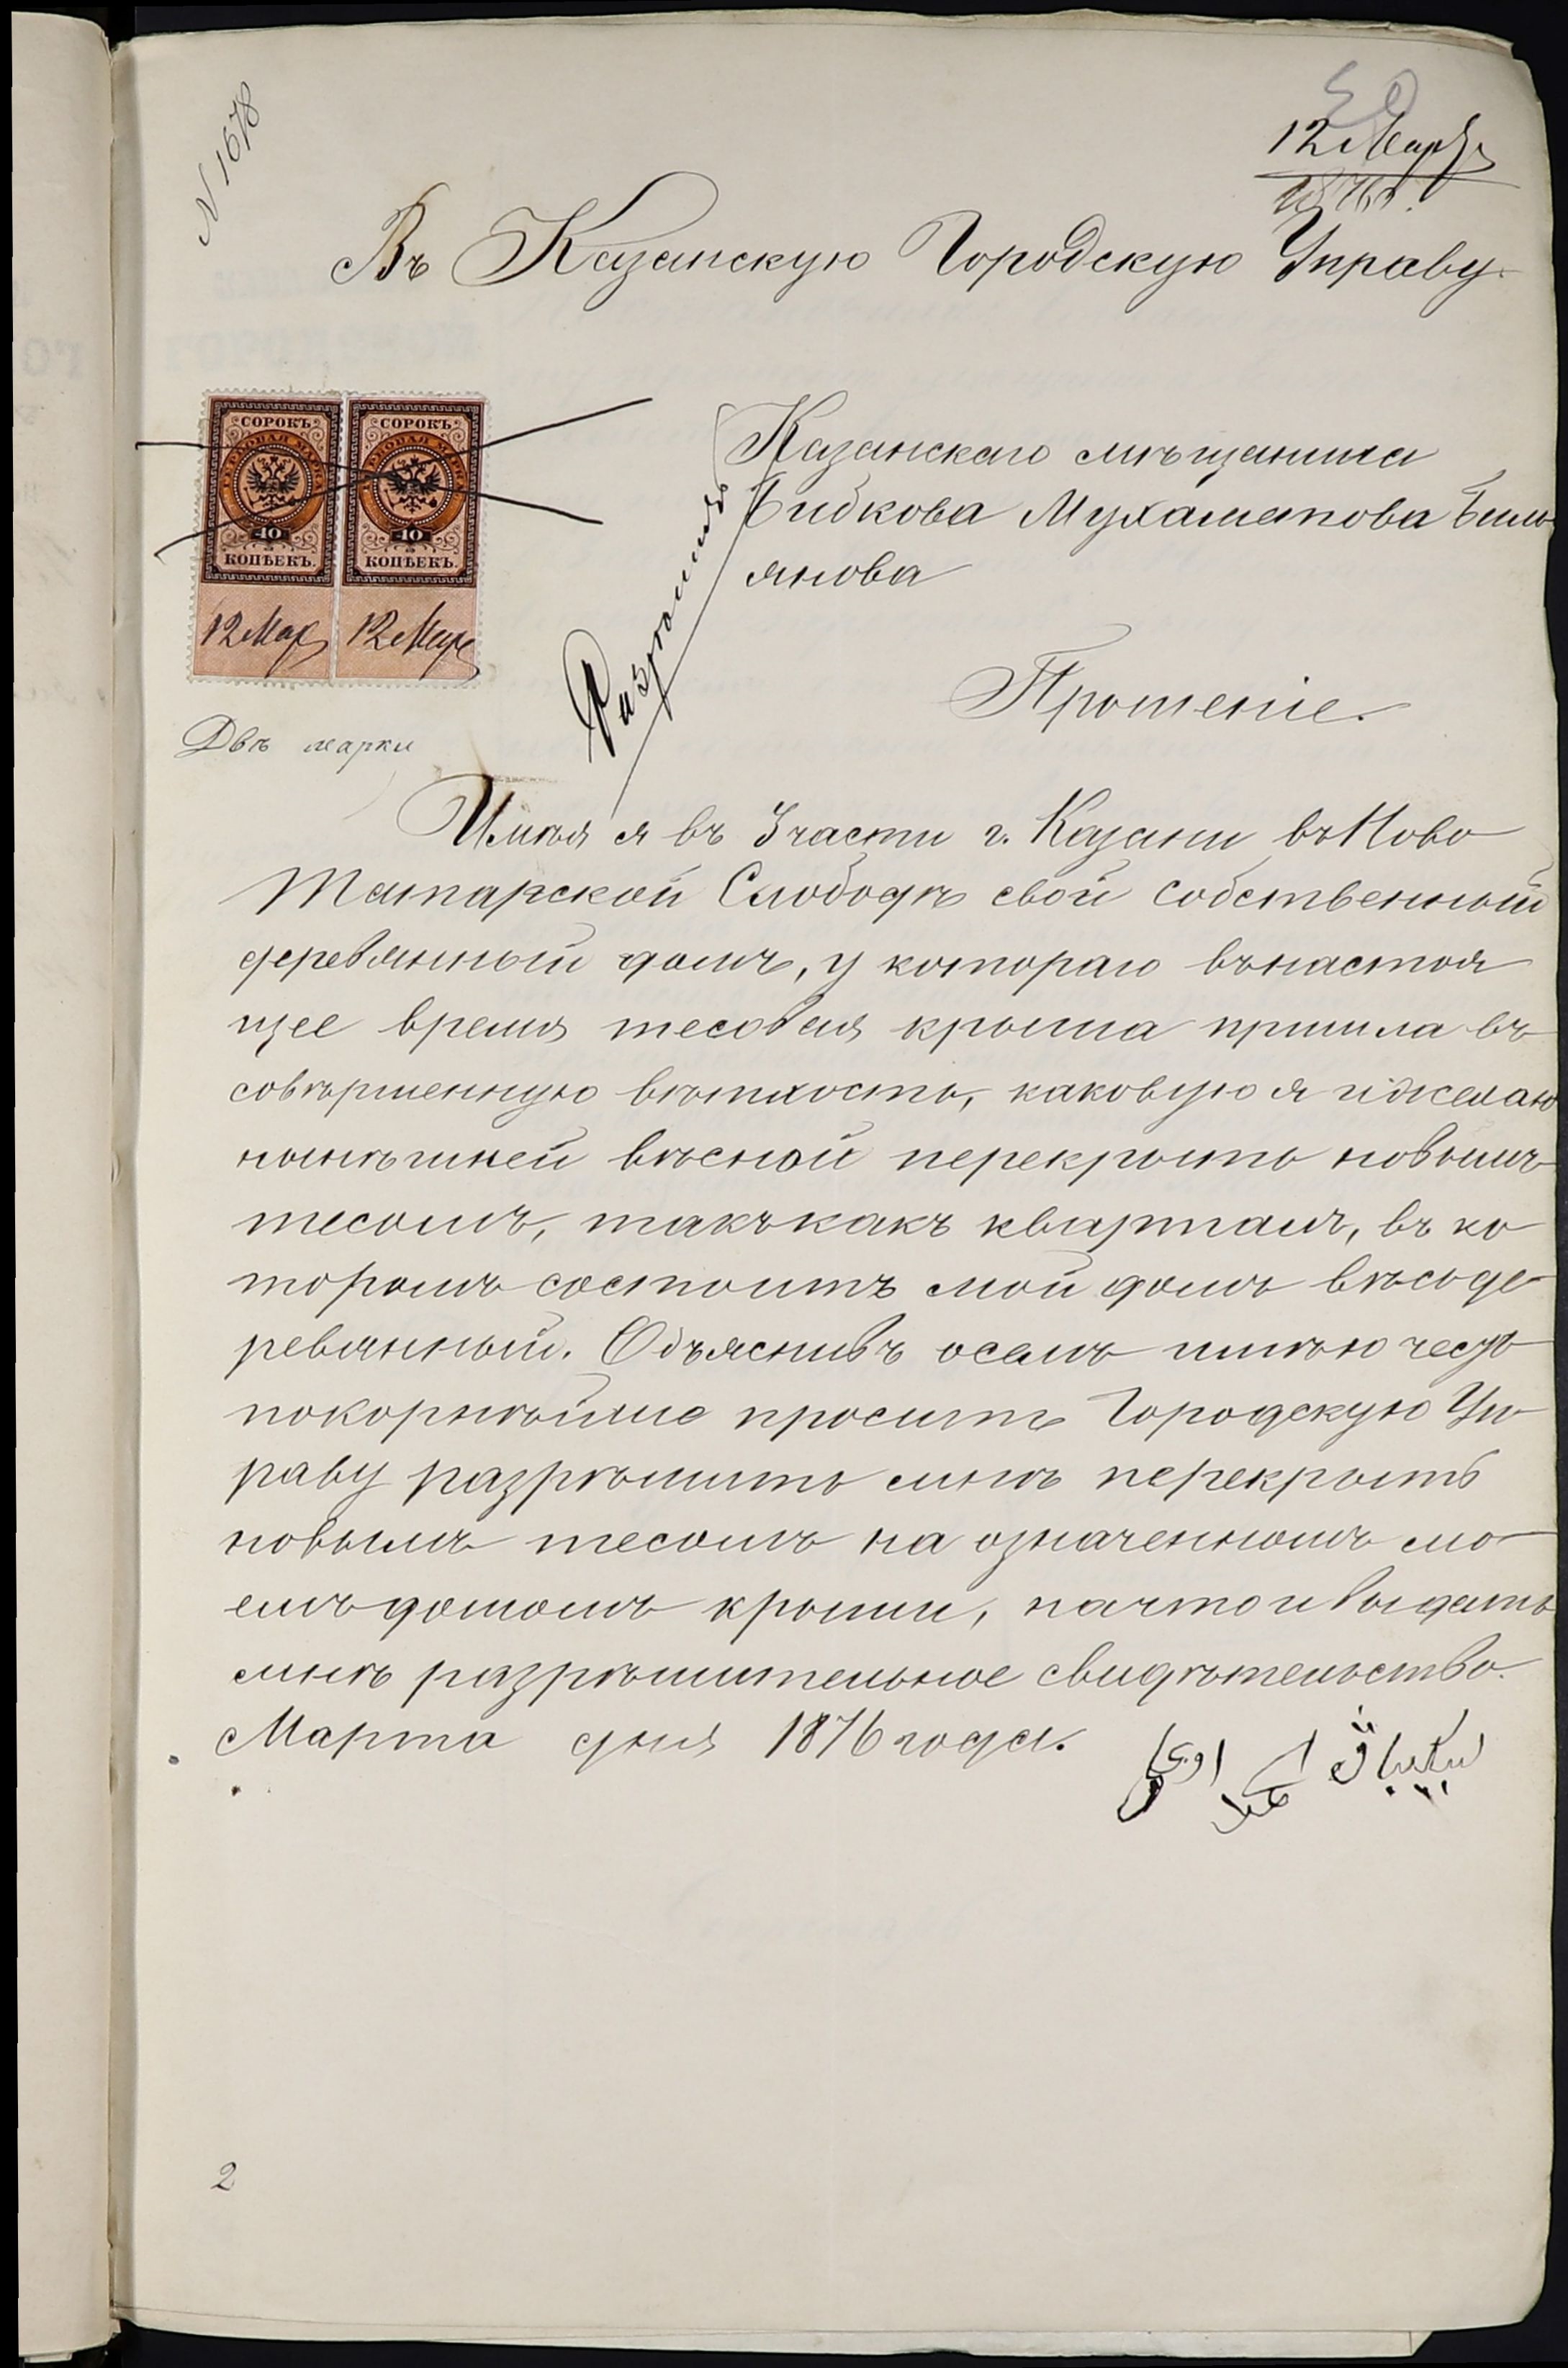 N 1678
12 Марта
1876 г.
Въ Казанскую Городскую Управу.
СОРОКЪ СОРОКЪ
ГЕРБОВАЯ МАРКА ГЕРБОВАЯ МАРКА
40 40
КОПѢЕКЪ. КОПѢЕКЪ.
12 Мар 12 Мар
Двѣ марки
Казанскаго мѣщанина
Мухаметова
янова
Прошеніе.
Имѣя я въ 3 части г. Казани въ Ново
Татарской Слободѣ свой собственный
деревянный домъ, у котораго въ настоя
щее время тесовая крыша пришла въ
совѣршенную вѣтхость, каковую я и желаю
нынѣшней вѣсной перекрыть новымъ
тесомъ, такъ какъ кварталъ, въ ко
торомъ состоитъ мой домъ вѣсь де
ревянный. Объяснивъ осемъ имѣю честь
покорнѣйше просить Городскую Уп
раву разрѣшить мнѣ перекрыть
новымъ тесомъ на означенномъ мо
емъ домомъ крыши, на что и выдать
мнѣ разрѣшительное свидѣтельство.
Марта дня 1876 года.
2